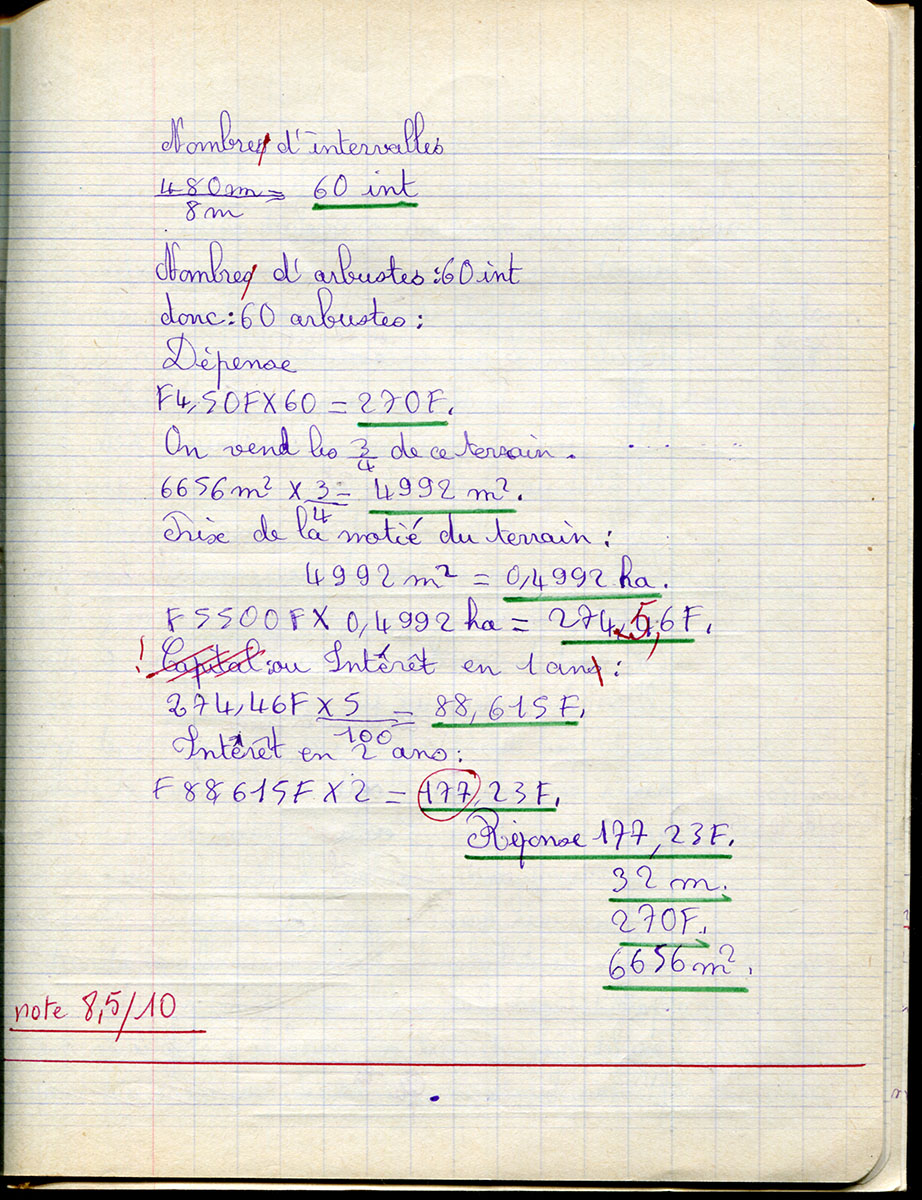 Nombres d'intervalles
480m = 60 int
8m
Nombres d'arbustes : 60 int
donc : 60 arbustes :
Dépense
F4,50F X 60 = 270F.
On vend les 3/4 de ce terrain.
6656 m² x 3/4 = 4992 m².
Prix de la motié du terrain :
4992 m² = 0,4992 ha.
F5500F X 0,4992 ha = 274,5,6F.
! Capital : ou Intérêt en 1 ans :
274,46F X 5/100 = 88,615F.
Intêrêt en 2 ans :
F88,615F X 2 = 177,23F.
Réponse 177,23F.
32 m.
270F.
6656 m².
note 8,5/10